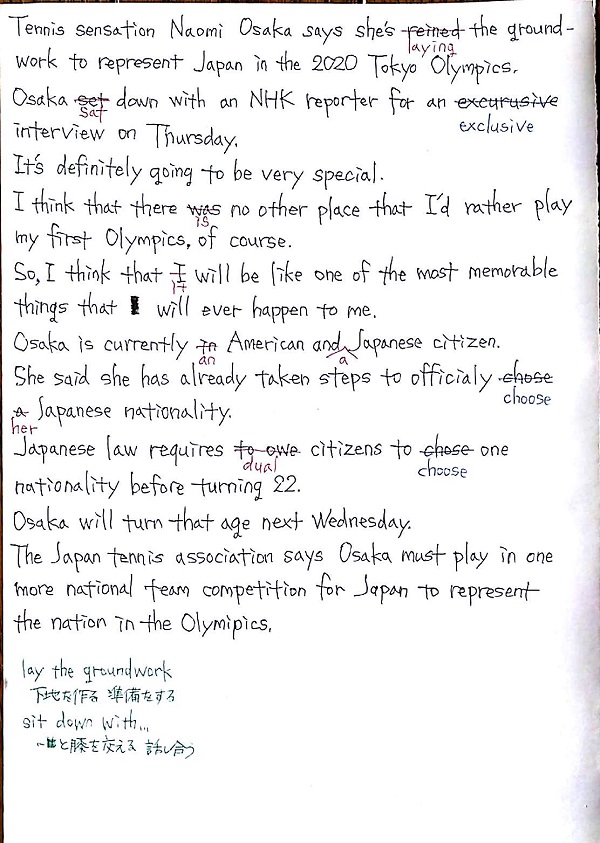 Tennis sensation Naomi Osaka says she's reined the ground-
laying
work to represent Japan in the 2020 Tokyo Olympics.
Osaka set down with an NHK reporter for an excurusive
sat exclusive
interview on Thursday.
It's definitely going to be very special.
I think that there was no other place that I'd rather play
is
my first Olympics, of course.
So, I think that I will be like one of the most memorable
it
things that will ever happen to me.
Osaka is currently in American and Japanese citizen.
an a
She said she has already taken steps to officialy chose
choose
a Japanese nationality.
her
Japanese law requires to owe citizens to chose one
dual choose
nationality before turning 22.
Osaka will turn that age next Wednesday.
The Japan tennis association says Osaka must play in one
more national team competition for Japan to represent
the nation in the Olymipics.
lay the groundwork
下地を作る 準備をする
sit down with...
…と膝を交える 話し合う